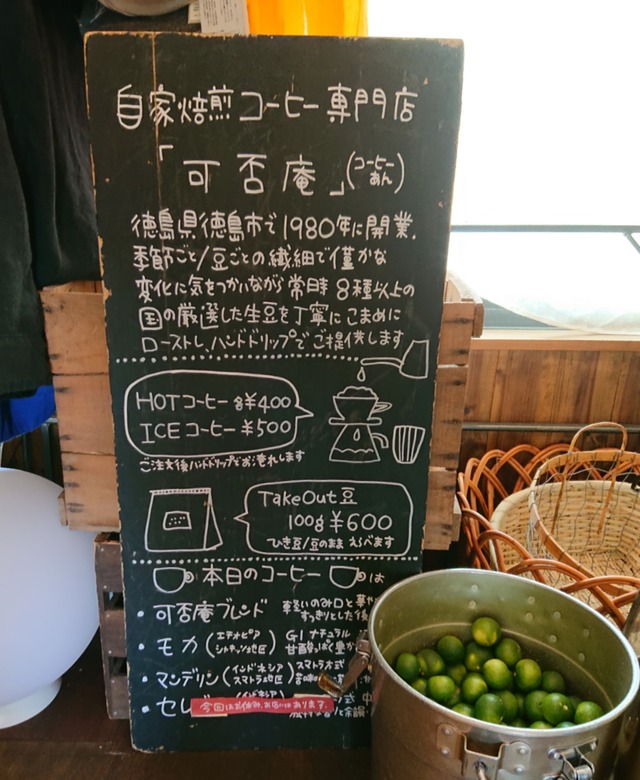 自家焙煎コーヒー専門店
「可否庵」(コーヒーあん)
徳島県徳島市で1980年に開業.
季節ごと/豆ごとの繊細で僅かな
変化に気をつかいながら常時8種以上の
国の厳選した生豆を丁寧にこまめに
ローストし、ハンドドリップでご提供します
HOTコーヒー ¥400
ICEコーヒー ¥500
ご注文後ハンドドリップでお淹れします
TakeOut豆
100g¥600
ひき豆/豆のまま えらべます
本日のコーヒー は
・可否庵ブレンド 軽いのみ口と
すっきりとした後
・モカ(エチオピア シダモ地区) G1 ナチュラル
甘酸っぱく豊か
・マンデリン(インドネシア スマトラ地区) スマトラ式
・セレ
今回はお休み。お店にはあります。